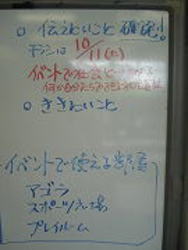 ○ 伝えたいこと 確認!
チラシは 10/11(火)
イベントで
○ ききたいこと
イベントで使える部屋
アゴラ
スポーツ広場
プレイルーム